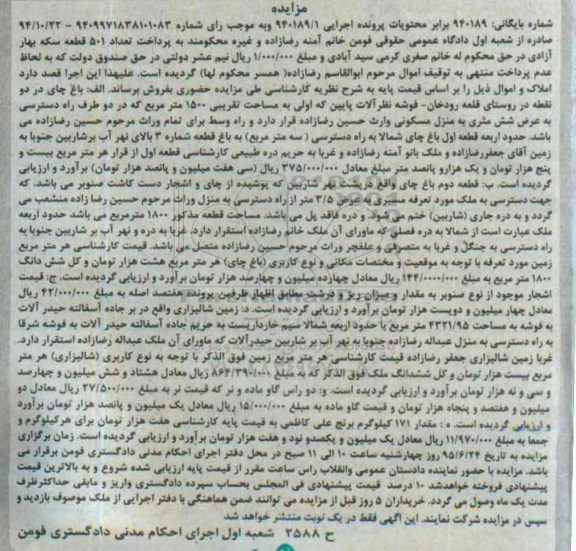 مزایده
شماره بایگانی: ۹۴۰۱۸۹ برابر محتویات پرونده اجرایی ۹۴۰۱۸۹/۱ وبه موجب رای شماره ۹۴۰۹۹۷۱۸۳۸۱۰۱۰۸۳ - ۹۴/۱۰/۲۲
صادره از شعبه اول دادگاه عمومی حقوقی فومن خانم آمنه رضازاده و غیره محکومند به پرداخت تعداد ۵۰۱ قطعه سکه بهار
آزادی در حق محکوم له خانم صغری کرمی سید آبادی و مبلغ ۱/۰۰۰/۰۰۰ ریال نیم عشر دولتی در حق صندوق دولت که به لحاظ
عدم پرداخت منتهی به توقیف اموال مرحوم ابوالقاسم رضازاده( همسر محکوم لها) گردیده است. علیهذا این اجرا قصد دارد
املاک و اموال ذیل را بر اساس قیمت پایه به شرح نظریه کارشناسی طی مزایده حضوری بفروش برساند. الف: باغ چای در دو
نقطه در روستای قلعه رودخان- فوشه نظرآلات پایین که اولی به مساحت تقریبی ۱۵۰۰ متر مربع که در دو طرف راه دسترسی
به عرض شش متری به منزل مسکونی وارث حسین رضازاده قرار دارد و راه وسط برای تمام وراث مرحوم حسین رضازاده می
باشد. حدود اربعه قطعه اول باغ چای شمالا به راه دسترسی ( سه متر مربع) به باغ قطعه شماره ۳ بالای نهر آب برشاربین جنوبا به
زمین آقای جعفررضازاده و ملک بانو آمنه رضازاده و غربا به حریم دره طبیعی کارشناسی قطعه اول از قرار هر متر مربع بیست و
پنج هزار تومان و یک هزارو پانصد متر مبلغ معادل ۳۷۵/۰۰۰/۰۰۰ ریال (سی هفت میلیون و پانصد هزار تومان) برآورد و ارزیابی
گردیده است. ب: قطعه دوم باغ چای واقع درپشت نهر شاربین که پوشیده از چای و اشجار دست کاشت صنوبر می باشد. که
جهت دسترسی به ملک مورد تعرفه مسیری به عرض ۳/۵ متر از راه دسترسی به منزل وراث مرحوم حسین رضا زاده منشعب می
گردد و به دره جاری (شاربین) ختم می شود. و دره فاقد پل می باشد. مساحت قطعه مذکور ۱۸۰۰ مترمربع می باشد حدود اربعه
ملک عبارت است از شمالا به دره فصلی که ماورای آن ملک خانم رضازاده استقرار دارد. غربا به دره و نهر آب بر شاربین جنوبا به
راه دسترسی به جنگل و غربا به متصرفی و علفچر وراث مرحوم حسین رضازاده متصل می باشد. قیمت کارشناسی هر متر مربع
زمین مورد تعرفه با توجه به موقعیت و مختصات مکانی و نوع کاربری (باغ چای) هر متر مربع هشت هزار تومان و کل شش دانگ
۱۸۰۰ متر مربع به مبلغ ۱۴۴/۰۰۰۰/۰۰۰ ریال معادل چهارده میلیون و چهارصد هزار تومان برآورد و ارزیابی گردیده است. ج: قیمت
اشجار موجود از نوع صنوبر به مقدار و میزان ریز و درشت مطابق اظهار طرفین پرونده هفتصد اصله به مبلغ ۴۲/۰۰۰/۰۰۰ ریال
معادل چهار میلیون و دویست هزار تومان برآورد و ارزیابی گردیده است. د: زمین شالیزاری واقع در بر جاده آسفالته حیدر آلات
به فوشه به مساحت ۴۳۲۱/۹۵ متر مربع با حدود اربعه شمالا سیم خارداربست به حریم جاده آسفالته حیدر آلات به فوشه شرقا
به راه دسترسی به منزل عبداله رضازاده جنوبا به نهر آب بر شاربین حیدرآلات که ماورای آن ملک عبداله رضازاده استقرار دارد.
غربا زمین شالیزاری جعفر رضازاده قیمت کارشناسی هر متر مربع زمین فوق الذکر با توجه به نوع کاربری (شالیزاری) هر متر
مربع بیست هزار تومان و کل ششدانگ ملک فوق الذکر که به مبلغ ۸۶۴/۳۹۰/۰۰۰ ریال معادل هشتاد و شش میلیون و چهارصد
و سی و نه هزار تومان برآورد و ارزیابی گردیده است. و: دو راس گاو ماده و نر که قیمت نر به مبلغ ۲۷/۵۰۰/۰۰۰ ریال معادل دو
میلیون و هفتصد و پنجاه هزار تومان و قیمت گاو ماده به مبلغ ۱۵/۰۰۰/۰۰۰ ریال معادل یک میلیون و پانصد هزار تومان برآورد
و ارزیابی گردیده است. ه : مقدار ۱۷۱ کیلوگرم برنج علی کاظمی به قیمت پایه کارشناسی هفت هزار تومان برای هرکیلوگرم و
جمعا به مبلغ ۱۱/۹۷۰/۰۰۰ ریال معادل یک میلیون و یکصدو نود و هفت هزار تومان برآورد و ارزیابی گردیده است. زمان برگزاری
مزایده به تاریخ ۹۵/۶/۲۴ روز چهارشنبه ساعت ۱۰ الی ۱۱ صبح در محل دفتر اجرای احکام مدنی دادگستری فومن برقرار می
باشد. مزایده با حضور نماینده دادستان عمومی وانقلاب راس ساعت مقرر از قیمت پایه ارزیابی شده شروع و به بالاترین قیمت
پیشنهادی فروخته خواهدشد ۱۰ درصد قیمت پیشنهادی فی المجلس بحساب سپرده دادگستری واریز و مابقی حداکثرظرف
مدت یک ماه وصول می گردد. خریداران ۵ روز قبل از مزایده می توانند ضمن هماهنگی با دفتر اجرایی از ملک موصوف بازدید و
سپس در مزایده شرکت نمایند. این آگهی فقط در یک نوبت منتشر خواهد شد
ح ۲۵۸۸ شعبه اول اجرای احکام مدنی دادگستری فومن